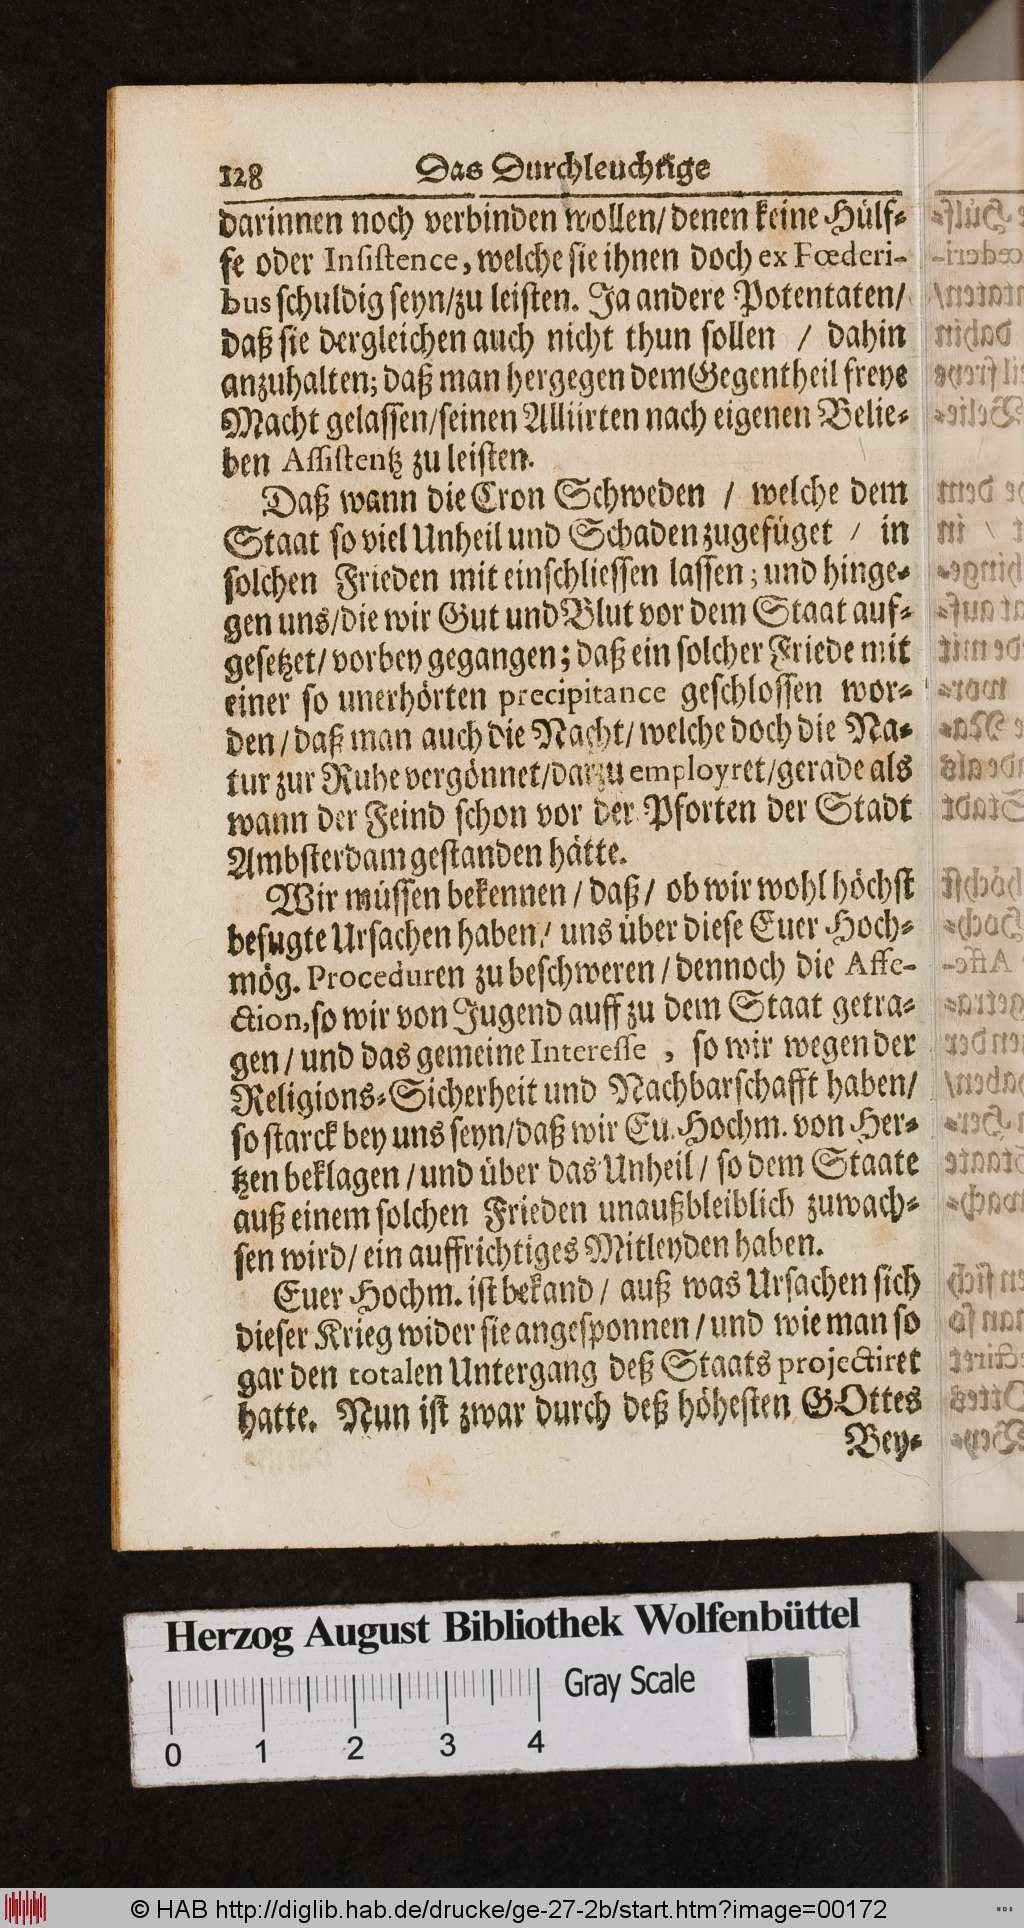 128 Das Durchleuchtige
darinnen noch verbinden wollen/ denen keine Hülf-
fe oder Insistence, welche sie ihnen doch ex Fœderi-
bus schuldig seyn/zu leisten. Ja andere Potentaten/
daß sie dergleichen auch nicht thun sollen / dahin
anzuhalten; daß man hergegen dem Gegentheil freye
Macht gelassen/seinen Alliirten nach eigenen Belie-
ben Assistentz zu leisten.
Daß wann die Cron Schweden / welche dem
Staat so viel Unheil und Schaden zugefüget / in
solchen Frieden mit einschliessen lassen; und hinge-
gen uns/die wir Gut und Blut vor dem Staat auf-
gesetzet/ vorbey gegangen; daß ein solcher Friede mit
einer so unerhörten precipitance geschlossen wor-
den/ daß man auch die Nacht/ welche doch die Na-
tur zur Ruhe vergönnet/darzu employret/gerade als
wann der Feind schon vor der Pforten der Stadt
Ambsterdam gestanden hätte.
Wir müssen bekennen / daß/ ob wir wohl höchst
befugte Ursachen haben/ uns über diese Euer Hoch-
mög. Proceduren zu beschweren / dennoch die Affe-
ction, so wir von Jugend auff zu dem Staat getra-
gen / und das gemeine Interesse , so wir wegen der
Religions-Sicherheit und Nachbarschafft haben/
so starck bey uns seyn/daß wir Eu. Hochm. von Her-
tzen beklagen / und über das Unheil / so dem Staate
auß einem solchen Frieden unaußbleiblich zuwach-
sen wird/ ein auffrichtiges Mitleyden haben.
Euer Hochm. ist bekand / auß was Ursachen sich
dieser Krieg wider sie angesponnen / und wie man so
gar den totalen Untergang deß Staats projectiret
hatte. Nun ist zwar durch deß höhesten GOttes
Bey-
Herzog August Bibliothek Wolfenbüttel
Gray Scale
0 1 2 3 4
© HAB http://diglib.hab.de/drucke/ge-27-2b/start.htm?image=00172